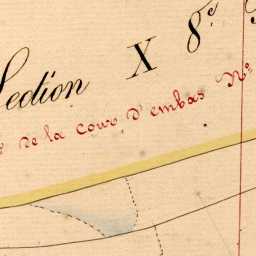 Section X 8.e
de la Cour d'embas No